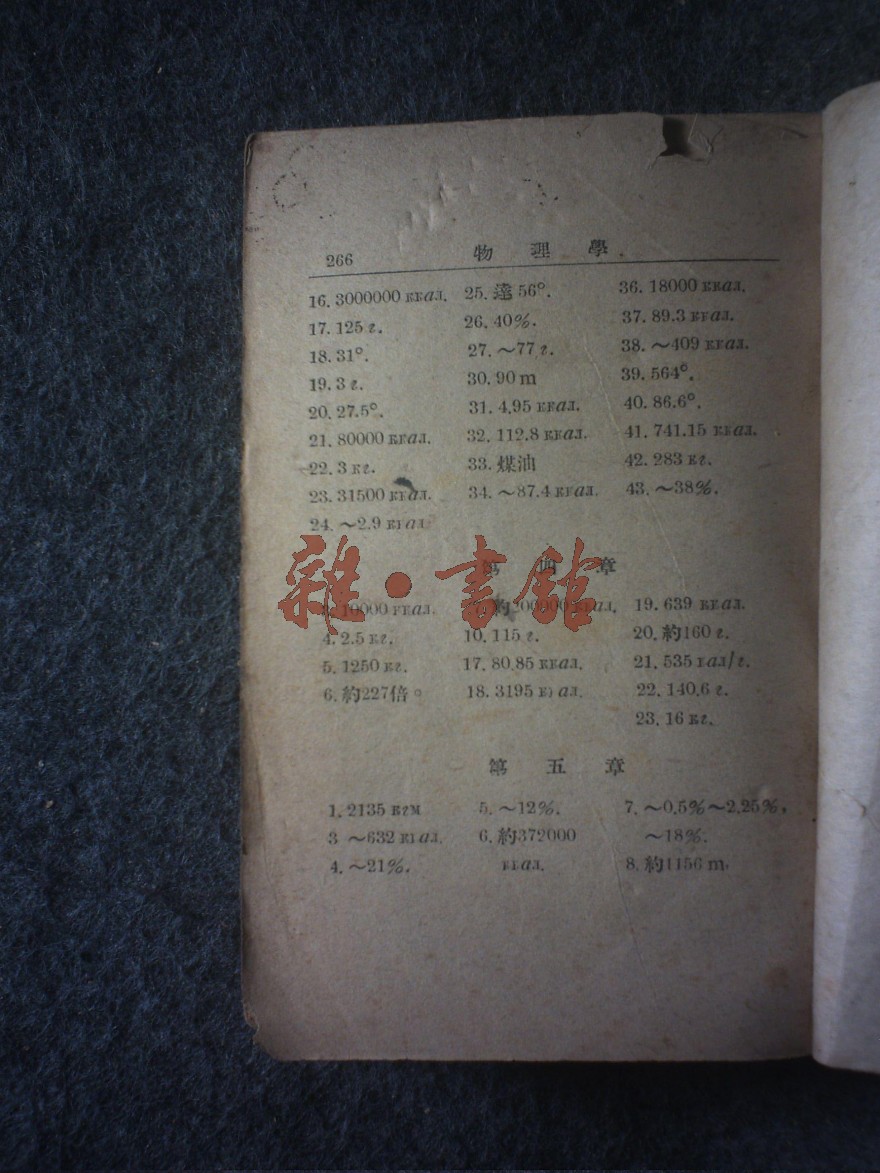 266 物理學
16. 3000000 ккал. 25. 達 56°. 36. 18000 ккал.
17. 125 г. 26. 40%. 37. 89.3 ккал.
18. 31°. 27. ～77 г. 38. ～409 ккал.
19. 3 г. 30. 90 m 39. 564°.
20. 27.5°. 31. 4.95 ккал. 40. 86.6°.
21. 80000 ккал. 32. 112.8 ккал. 41. 741.15 ккал.
22. 3 кг. 33. 煤油 42. 283 кг.
23. 31500 ккал. 34. ～87.4 ккал. 43. ～38%.
24. ～2.9 ккал
第四章
10000 ккал. 約200000 ккал. 19. 639 ккал.
4. 2.5 кг. 10. 115 г. 20. 約160 г.
5. 1250 кг. 17. 80.85 ккал. 21. 535 кал/г.
6. 約227倍。 18. 3195 ккал. 22. 140.6 г.
23. 16 кг.
雜·書館
第五章
1. 2135 кгм 5. ～12%. 7. ～0.5%～2.25%.
3 ～632 ккал. 6. 約372000 ～18%.
4. ～21%. ккал. 8. 約1156 m.